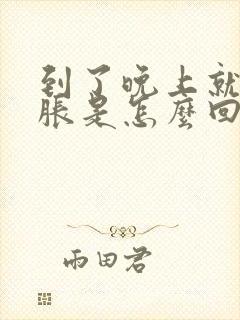 到了晚上就
脹是怎麼回
雨田君